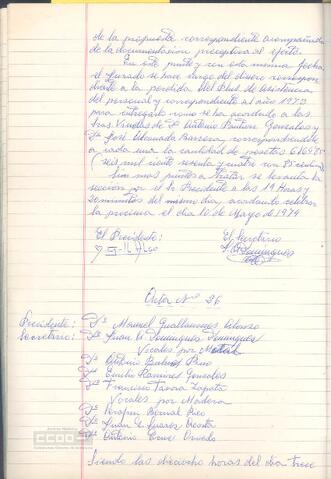 de la propuesta correspondiente acompañada
de la documentacion preceptiva al efecto.
En este punto y con esta misma fecha
el Jurado se hace cargo del dinero correspon-
diente a la perdida del Plus de asistencia
del personal y correspondiente al año 1973
para entregarlo como se ha acordado a las
Sras. Viudas de Dn Antonio Gonzales y
Dn José correspondiendole
a cada una la cantidad de pesetas
(seis mil ciento sesenta y cuatro con
Sin mas puntos a tratar se levanta la
seccion por el Sr Presidente a las 19 Horas y
30 minutos del mismo dia, acordando celebrar
la proxima el dia 10 de Mayo de 1974
El Presidente: El Secretario
Acta Nº 26
Presidente: Dn Manuel Alonso
Secretario: Dn Juan Dominguez Dominguez
Vocales por Metal
Dn Antonio
Dn Emilio Ramirez Gonzales
Dn Francisco Tavora Zapata
Vocales por Madera
Dn Serafin Bernal Rico
Dn Juan Suarez Acosta
Dn Antonio Cruz Oviedo
Siendo las dieciocho horas del dia trece
CCOO